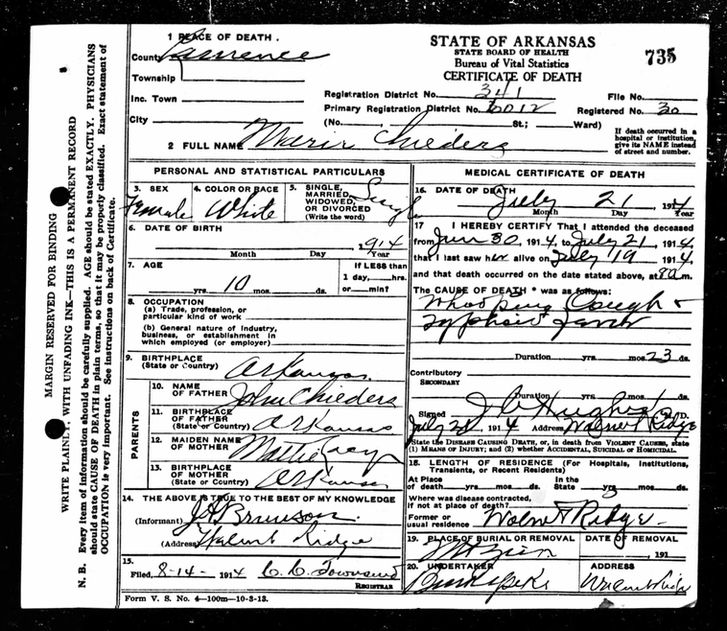 STATE OF ARKANSAS
STATE BOARD OF HEALTH
Bureau of Vital Statistics
CERTIFICATE OF DEATH
735
1 PLACE OF DEATH.
County Lawrence
Township
Inc. Town
City
Registration District No. 341 File No.
Primary Registration District No. 6012 Registered No. 30
(No. St.; Ward)
If death occurred in a
hospital or institution,
give its NAME instead
of street and number.
2 FULL NAME Marie Childers
PERSONAL AND STATISTICAL PARTICULARS
3. SEX Female
4. COLOR OR RACE White
5. SINGLE,
MARRIED,
WIDOWED,
OR DIVORCED
(Write the word)
Single
6. DATE OF BIRTH
, 1914
Month Day Year
7. AGE If LESS than
1 day,....hrs.
10 yrs. mos. ds. or....min?
8. OCCUPATION
(a) Trade, profession, or
particular kind of work
(b) General nature of industry,
business, or establishment in
which employed (or employer)
9. BIRTHPLACE
(State or Country) Arkansas
PARENTS
10. NAME
OF FATHER John Childers
11. BIRTHPLACE
OF FATHER
(State or Country) Arkansas
12. MAIDEN NAME
OF MOTHER Mattie
13. BIRTHPLACE
OF MOTHER
(State or Country) Arkansas
14. THE ABOVE IS TRUE TO THE BEST OF MY KNOWLEDGE
(Informant) Brunson
(Address) Walnut Ridge
15.
Filed, 8-14- 1914 C. C. Townsend
REGISTRAR
Form V. S. No. 4—100m—10-3-13.
MEDICAL CERTIFICATE OF DEATH
16. DATE OF DEATH
July 21 1914
Month Day Year
17 I HEREBY CERTIFY That I attended the deceased
from Jun 30, 1914, to July 21, 1914,
that I last saw her alive on July 19, 1914,
and that death occurred on the date stated above, at 8 a m.
The CAUSE OF DEATH * was as follows:
Whooping Cough &
Typhoid Fever
Duration yrs. mos. 23 ds.
Contributory
SECONDARY
Duration yrs. mos. ds.
Signed J C Hughes M. D.
July 1914 Address Walnut Ridge
*State the DISEASE CAUSING DEATH, or, in death from VIOLENT CAUSES, state
(1) MEANS OF INJURY; and (2) whether ACCIDENTAL, SUICIDAL OR HOMICIDAL.
18. LENGTH OF RESIDENCE (For Hospitals, Institutions,
Transients, or Recent Residents)
At Place In the
of death yrs. mos. ds. State yrs. mos. ds.
Where was disease contracted,
if not at place of death?
Former or
usual residence Walnut Ridge
19. PLACE OF BURIAL OR REMOVAL DATE OF REMOVAL
Mt Zion , 191
20. UNDERTAKER ADDRESS
Walnut Ridge
MARGIN RESERVED FOR BINDING
WRITE PLAINLY, WITH UNFADING INK—THIS IS A PERMANENT RECORD
N. B. Every item of information should be carefully supplied. AGE should be stated EXACTLY. PHYSICIANS
should state CAUSE OF DEATH in plain terms, so that it may be properly classified. Exact statement of
OCCUPATION is very important. See instructions on back of Certificate.